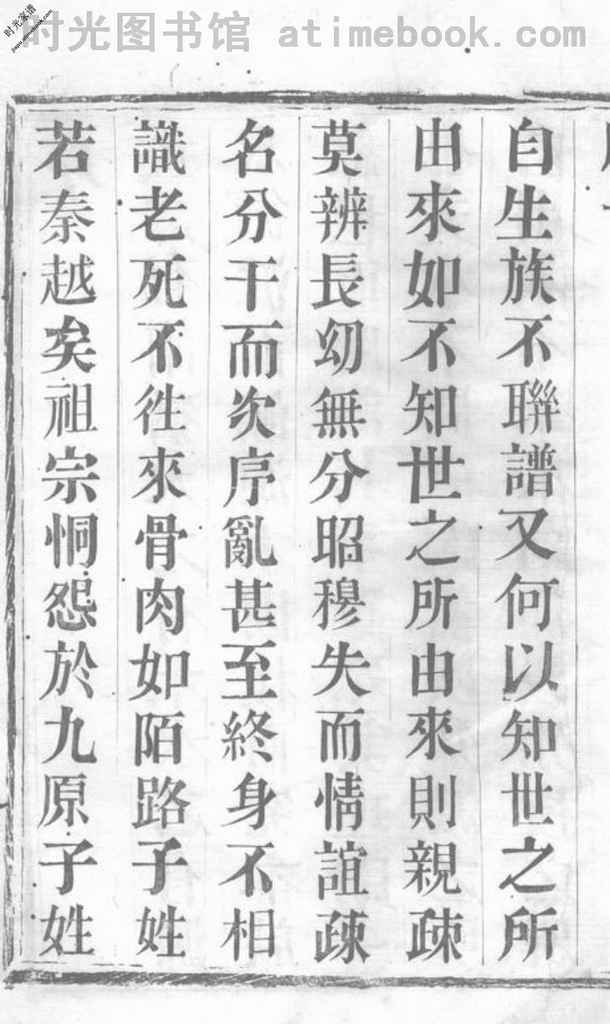 时光图书馆 atimebook.com
时光家谱
www.atimebook.com
自生族不聯譜又何以知世之所
由來如不知世之所由來則親疎
莫辨長㓜無分昭穆失而情誼疎
名分干而次序亂甚至終身不相
識老死不徃來骨肉如陌路子姓
若秦越矣祖宗恫怨於九原子姓